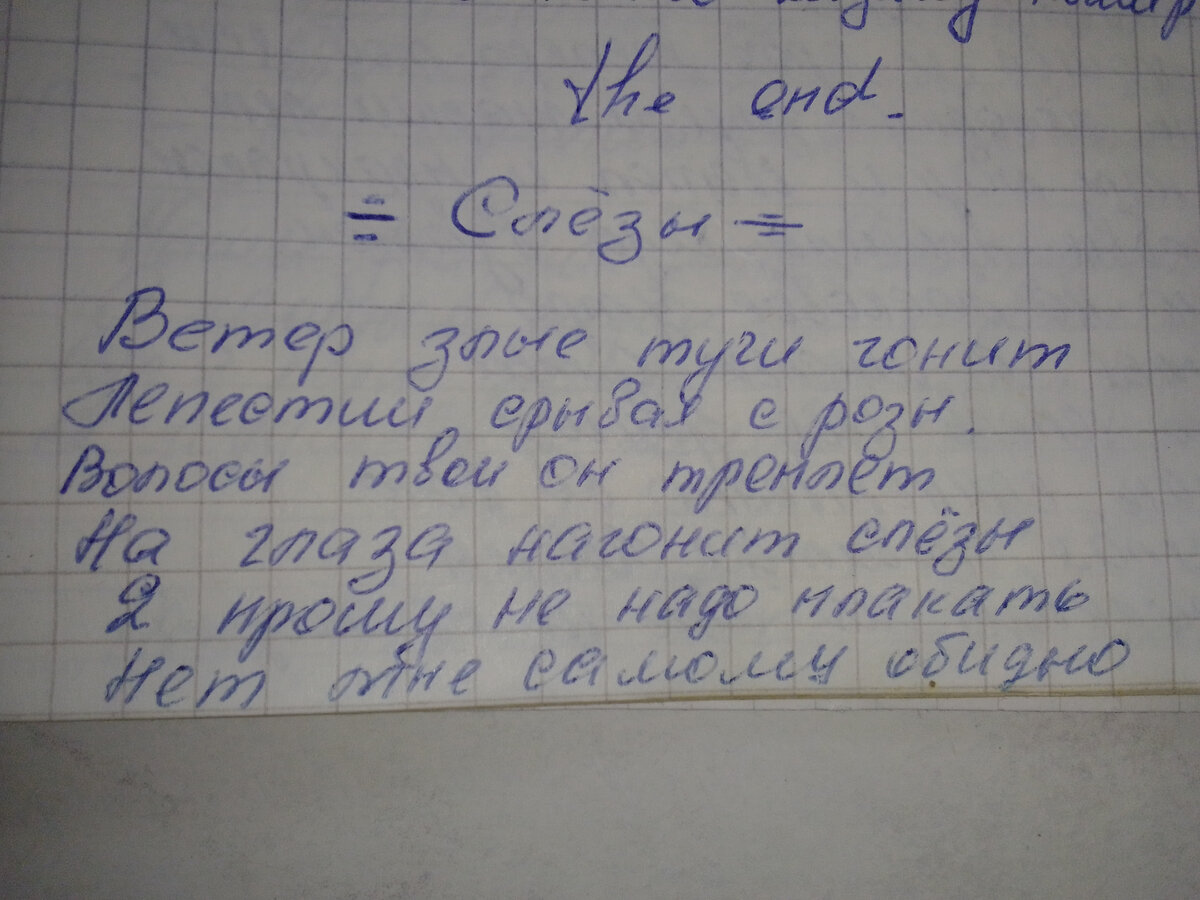 the end.
= Слёзы =
Ветер злые тучи гонит
Лепестки срывая с розы.
Волосы твои он треплет
На глаза нагонит слёзы
Я прошу не надо плакать
Нет мне самому обидно